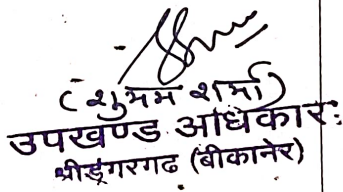 (शुभम शर्मा)
उपखण्ड अधिकार:
श्रीडूंगरगढ (बीकानेर)